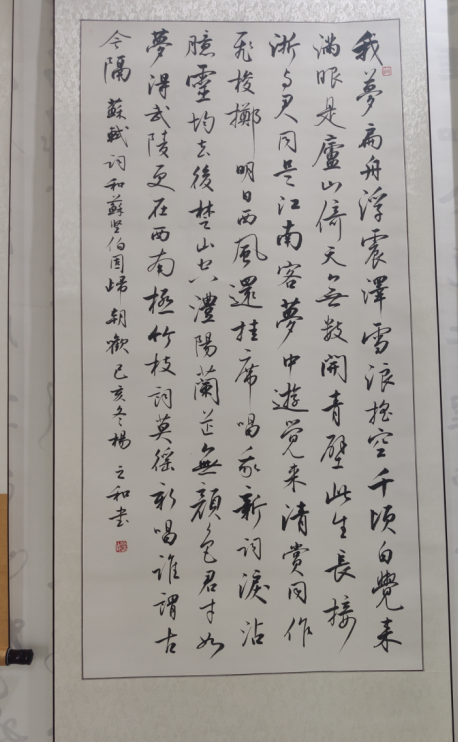 我夢扁舟浮震澤雪浪搖空千頃白覺来
滿眼是廬山倚天無數開青壁此生長接
淅与君同是江南客夢中遊覺来清賞同作
飛梭擲明日西風還挂席唱我新詞淚沾
臆靈均去後楚山空澧陽蘭芷無顏色君才如
夢得武陵更在西南極竹枝詞莫徭新唱誰謂古
今隔 蘇軾詞和蘇堅伯固歸朝歡 己亥冬楊 和書